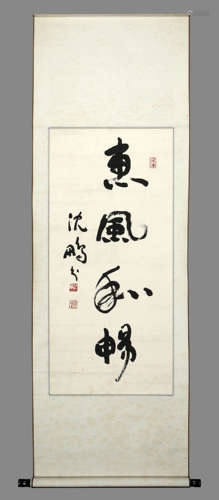 惠風和暢
沈鵬书